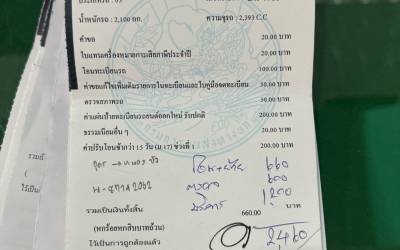 น้ำหนักรถ : 2,100 กก. ความจุรถ : 2,393 C.C
ค่าขอ 20.00 บาท
ใบแทนเครื่องหมายการเสียภาษีประจำปี 20.00 บาท
โอนทะเบียนรถ 100.00 บาท
ค่าขอแก้ไขเพิ่มเติมรายการในทะเบียนและใบคู่มือจดทะเบียน 50.00 บาท
ตรวจสภาพรถ 50.00 บาท
ค่าแผ่นป้ายทะเบียนรถยนต์ออกใหม่ รับปกติ 200.00 บาท
ธรรมเนียมอื่น ๆ 20.00 บาท
ค่าปรับโอนช้ากว่า 15 วัน (ม.17) ช่วงที่ 1 200.00 บาท
660
ตรวจ 600
บริการ 1,200
รวมเป็นเงินทั้งสิ้น 660.00 บาท
(หกร้อยหกสิบบาทถ้วน) 2,460
ไว้เป็นการถูกต้องแล้ว
รวมทั้
ไว้เป็น